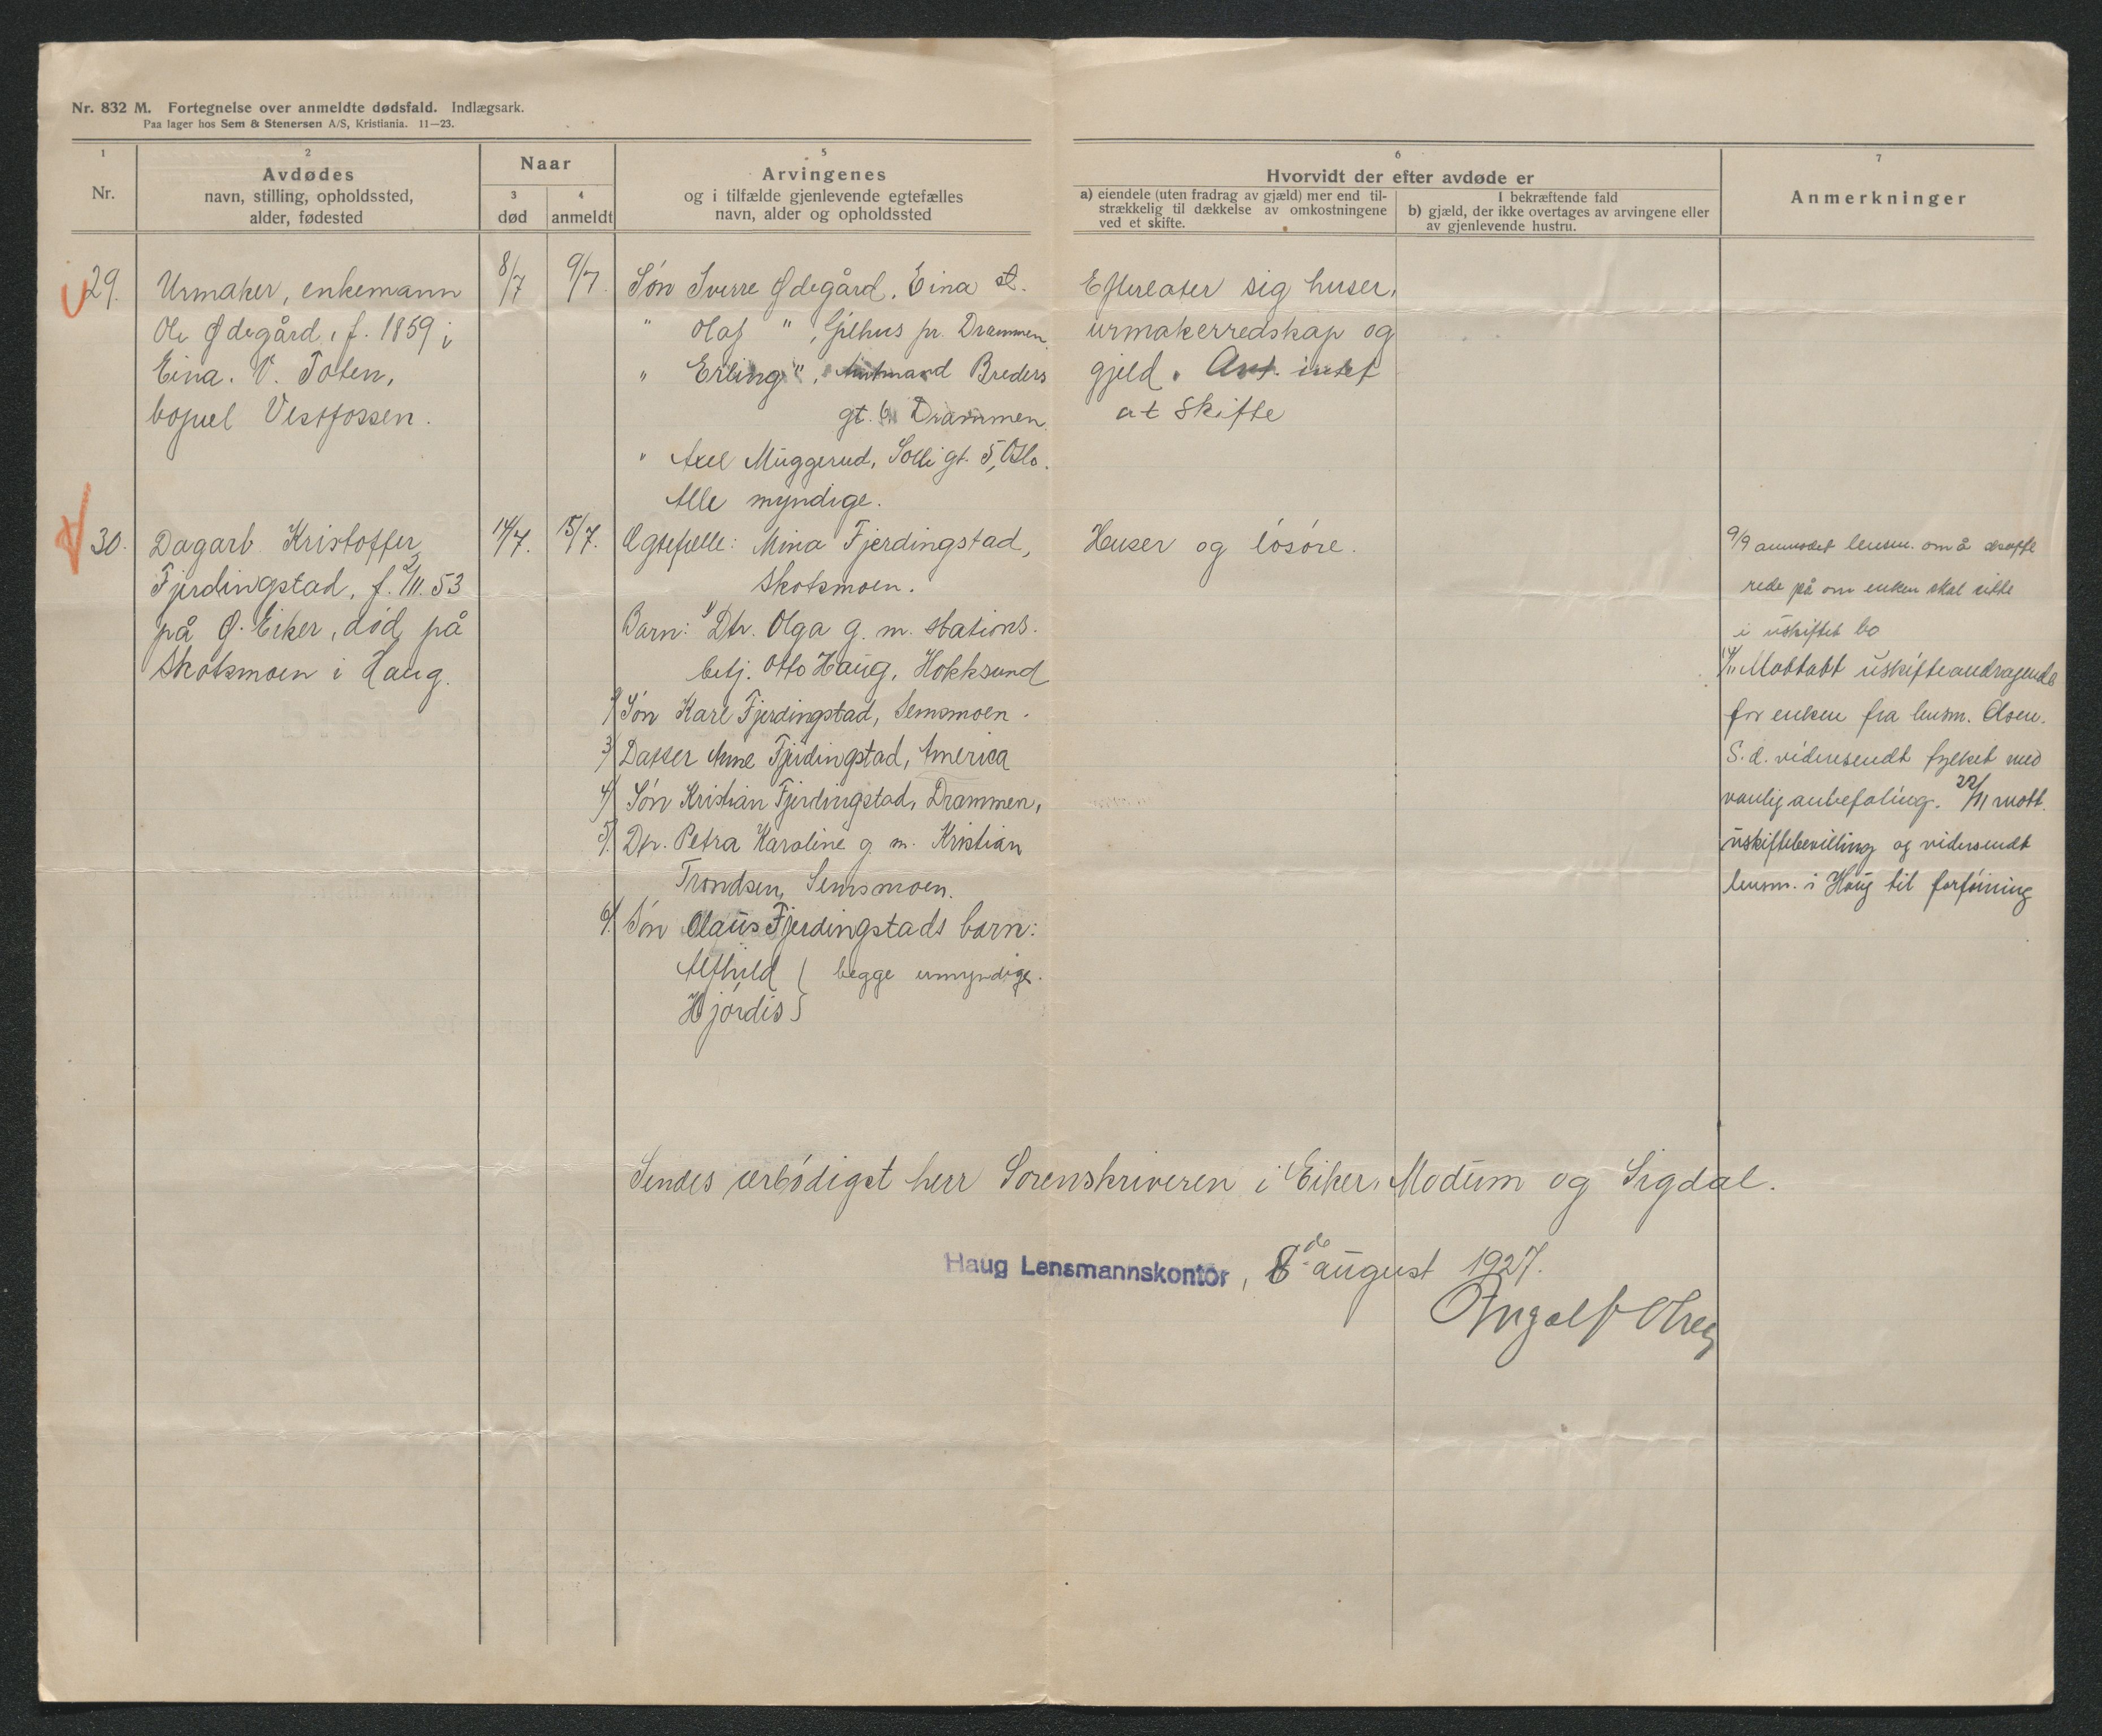 Nr. 832 M. Fortegnelse over anmeldte dødsfald. Indlægsark.
Paa lager hos Sem & Stenersen A/S, Kristiania. 11—23.
1
Nr.
2
Avdødes
navn, stilling, opholdssted,
alder, fødested
Naar
3
død
4
anmeldt
5
Arvingenes
og i tilfælde gjenlevende egtefælles
navn, alder og opholdssted
6
Hvorvidt der efter avdøde er
a) eiendele (uten fradrag av gjæld) mer end til-
strækkelig til dækkelse av omkostningene
ved et skifte.
I bekræftende fald
b) gjæld, der ikke overtages av arvingene eller
av gjenlevende hustru.
7
Anmerkninger
29.
Urmaker, enkemann
Ole Ødegård, f. 1859 i
Eina. V. Toten,
bopel Vestfossen.
8/7
9/7.
Søn Sverre Ødegård, Eina st.
" Olaf ", Gjlhus pr. Drammen.
" Erling ", Amtmand Breders
gt. 6 Drammen.
" Axel Muggerud, Solli gt. 5, Oslo.
Alle myndige.
Efterlater sig huser,
urmakerredskap og
gjeld. Ant. intet
at skifte
30.
Dagarb. Kristoffer
Fjerdingstad, f. 2/11. 53
på Ø. Eiker, død på
Skotsmoen i Haug.
14/7.
15/7.
Egtefelle: Mina Fjerdingstad,
Skotsmoen.
Barn: 1) Dtr. Olga g. m. stations-
betj. Otto Haug, Hokksund
2) Søn Karl Fjerdingstad, Semsmoen.
3) Datter Anne Fjerdingstad, America
4) Søn Kristian Fjerdingstad, Drammen,
5) Dtr. Petra Karoline g. m. Kristian
Trondsen, Semsmoen.
6) Søn Olaus Fjerdingstads barn:
Alfhild } begge umyndige.
Hjørdis }
Huser og løsøre.
9/9 anmodet lensm. om å skaffe
rede på om enken skal sitte
i uskiftet bo
14/11 Mottatt uskifteandragende
for enken fra lensm. Olsen.
S. d. videresendt fylket med
vanlig anbefaling. 22/11 mott.
uskiftebevilling og videresendt
lensm. i Haug til forføining
Sendes ærbødigst herr Sorenskriveren i Eiker, Modum og Sigdal.
Haug Lensmannskontor, 8de august 1927.
Ingolf Olsen